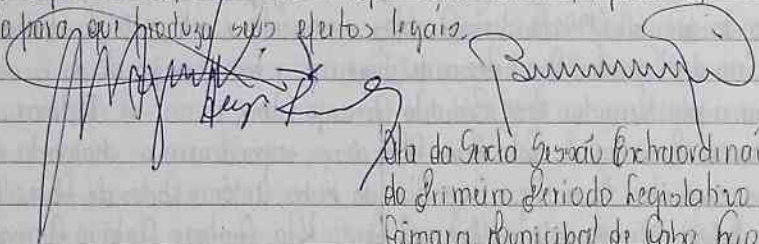 a para que produza seus efeitos legais.
Ata da Sexta Sessão Extraordinár
do Primeiro Período Legislativo
Câmara Municipal de Cabo Frio